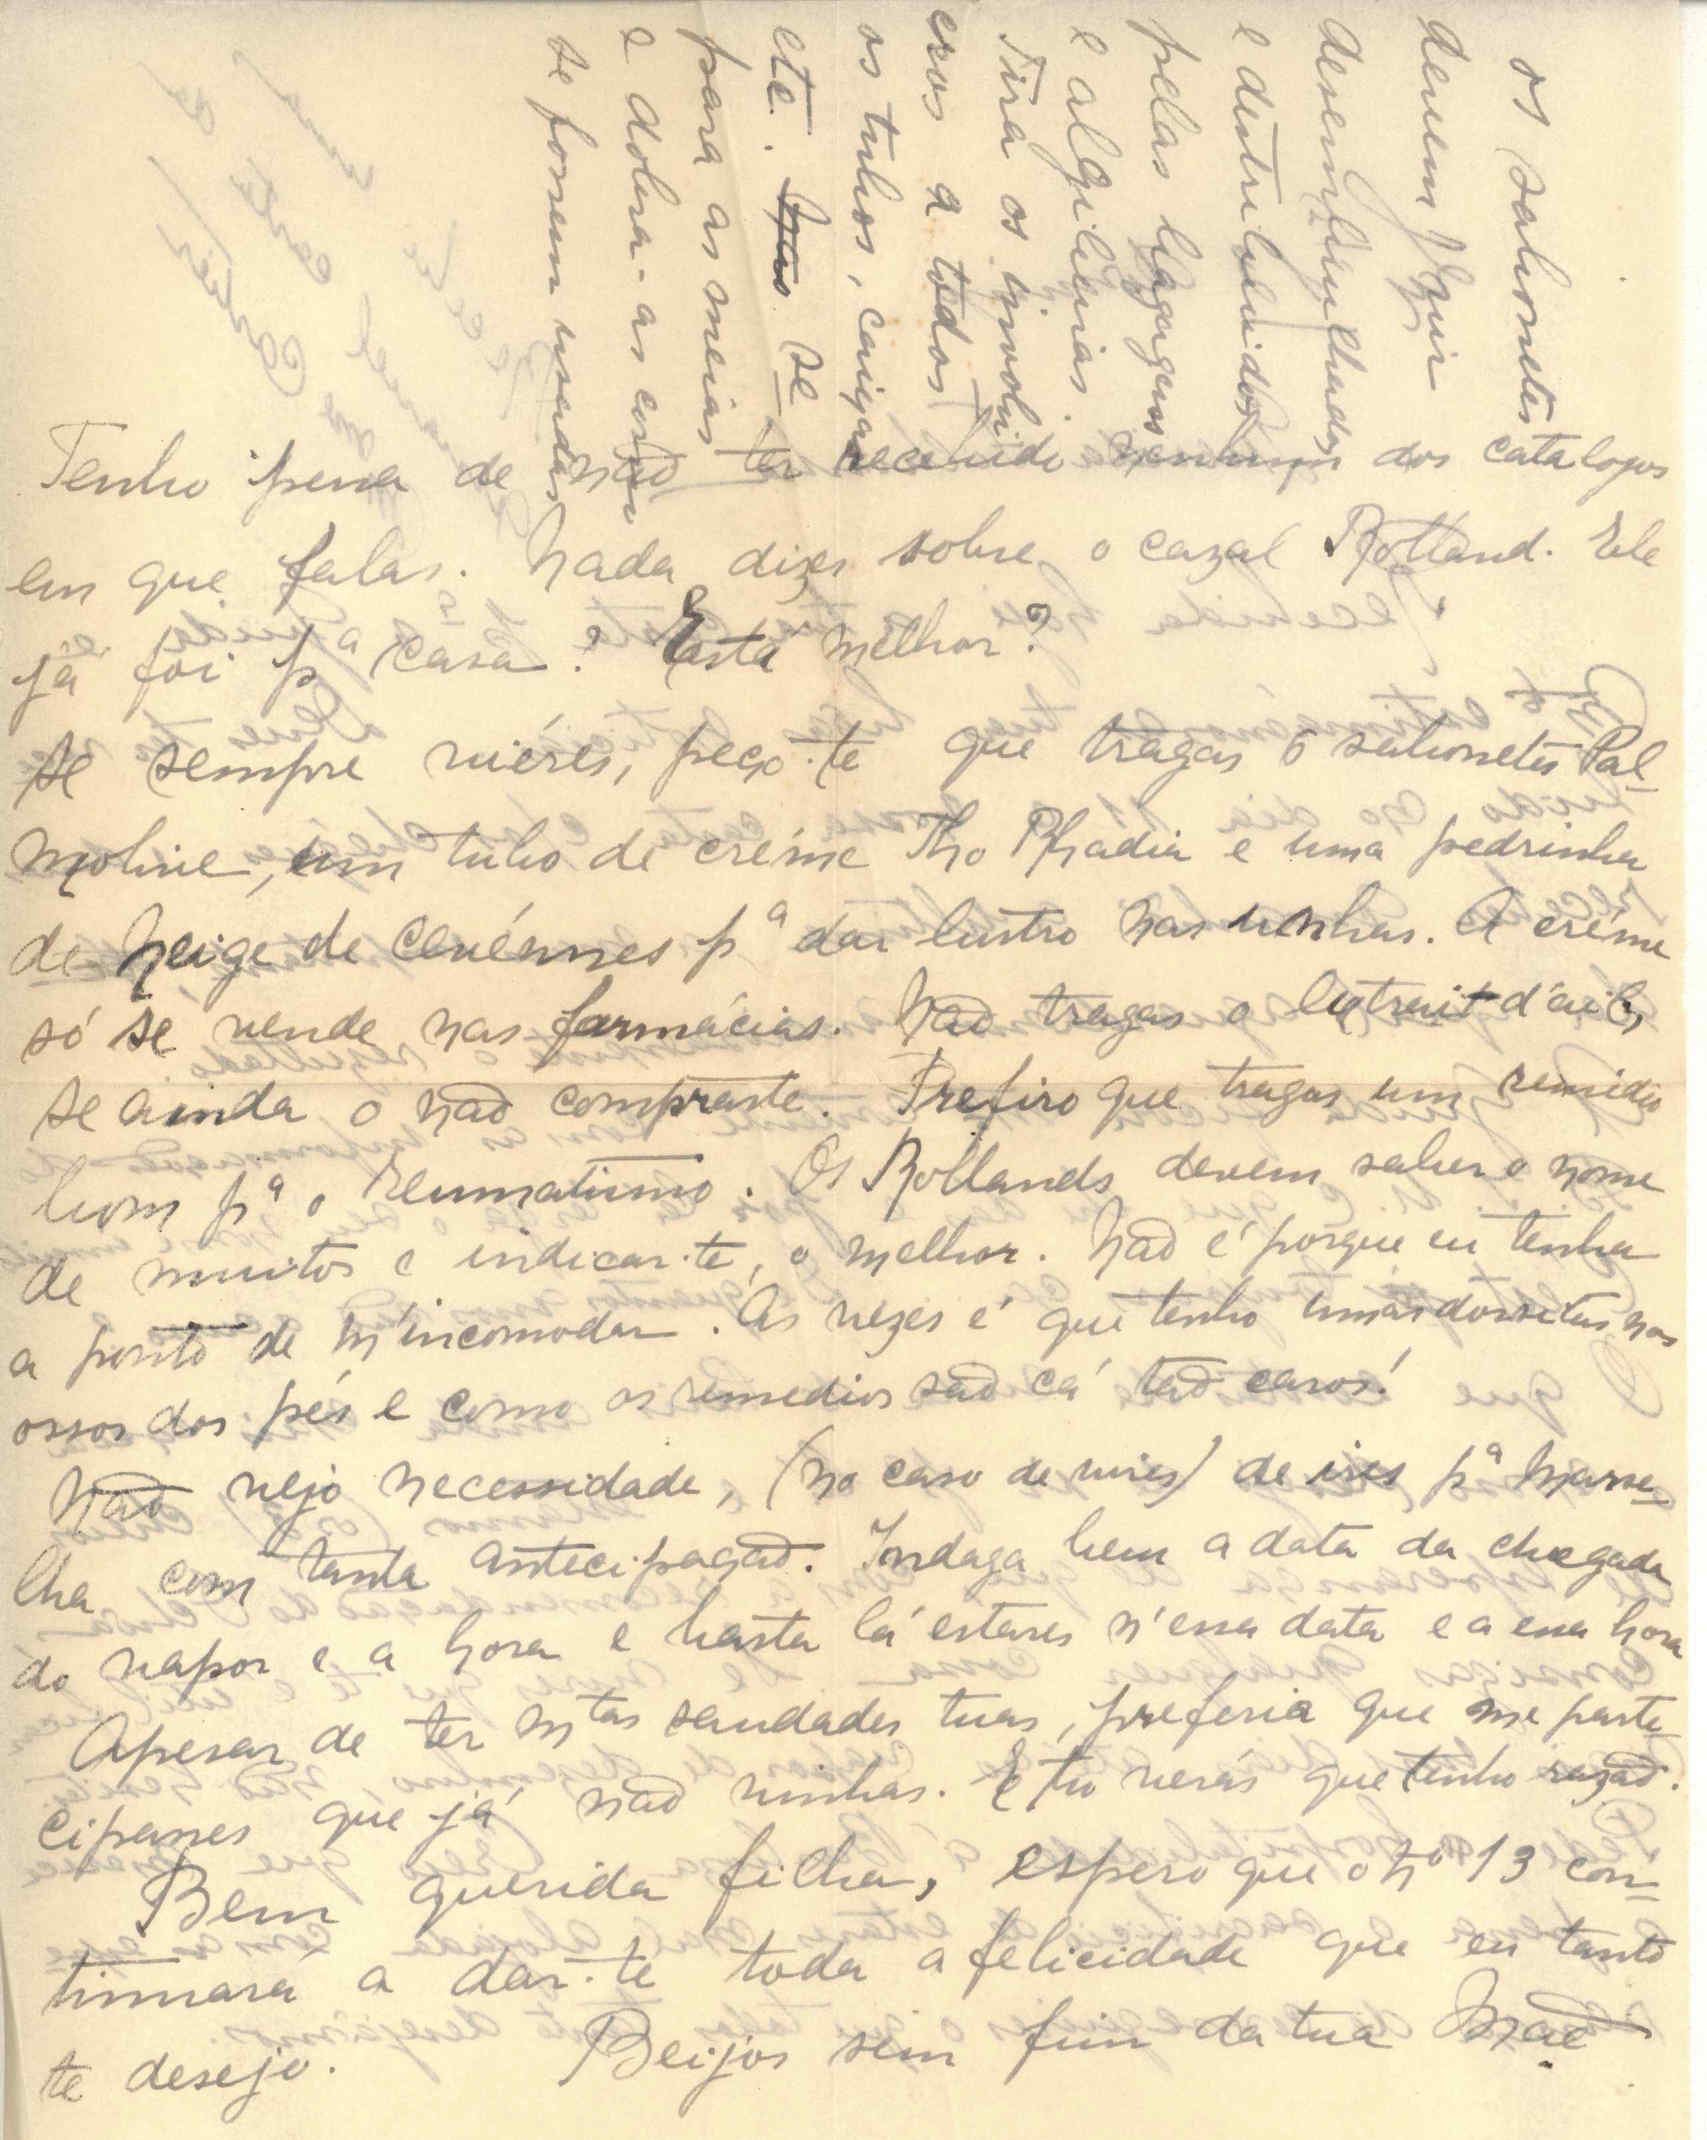 Tenho pena de não ter recebido nenhum dos catalogos
em que falas. Nada dizes sobre o cazal Rolland. Ele
já foi pª casa? Está melhor?
Se sempre viéres, peço-te que tragas 6 sabonetes Pal-
moline, um tubo de créme Tho Rhadia e uma pedrinha
de Neige de Cevénnes pª dar lustro nas unhas. A créme
só se vende nas farmácias. Não tragas o Extrait d'ail,
se ainda o não compraste. Prefiro que tragas um remédio
bom pª o Reumatismo. Os Rollands devem saber o nome
de muitos e indicar-te, o melhor. Não é porque eu tenha
a ponto de m'incomodar. Ás vezes é que tenho umas dorsitas nos
ossos dos pés e como os remedios são cá tão caros!
Não vejo necessidade, (no caso de vires) de ires pª Marse-
lha com tanta antecipação. Indaga bem a data da chegada
do vapor e a hora e basta lá estares n'essa data e a essa hora
Apesar de ter mtas saudades tuas, preferia que me parte-
cipasses que já não vinhas. E tu verás que tenho razão.
Bem querida filha, espero que o nº 13 con-
tinuará a dar-te toda a felicidade que eu tanto
te desejo. Beijos sem fim da tua Mãe
os sabonetes
devem vir
desembrulhados
e destribuidos
pelas bagagens
e algibeiras.
Tira os involu-
cros a todos
os tubos, caixas
etc. se
para as meias
e dobra-as como
se fossem usadas